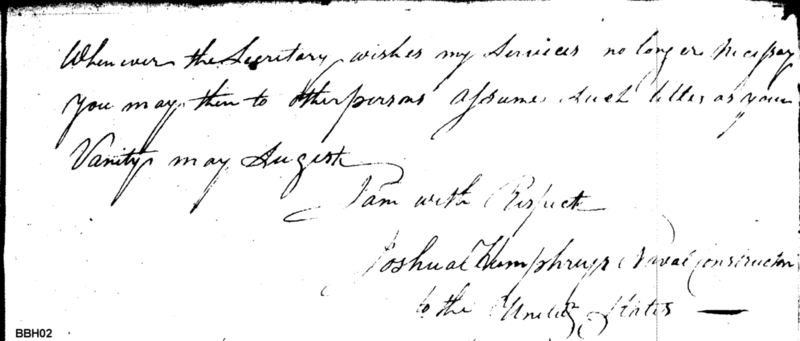 Whenever the Secretary wishes my Services no longer necessary
you may then to other persons assume such titles as your
Vanity may Sugest
I am with Respect
Joshua Humphreys Naval Constructor
to the United States —
BBH02